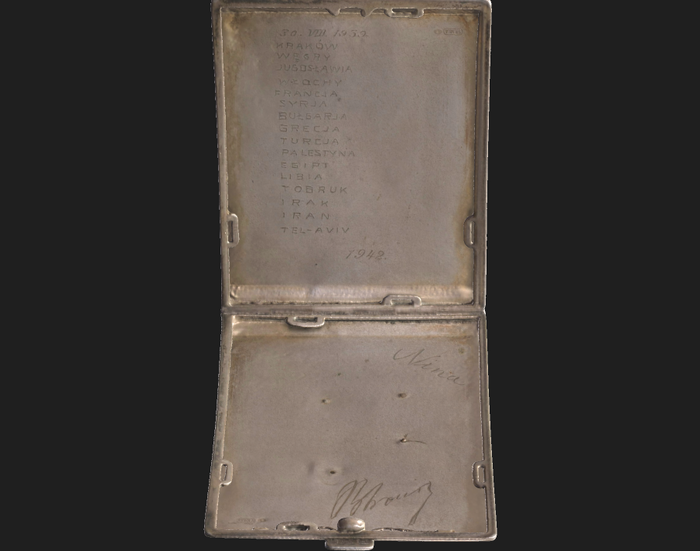 30. VIII. 1939.
KRAKÓW
WĘGRY
JUGOSŁAWIA
WŁOCHY
FRANCJA
SYRJA
BUŁGARJA
GRECJA
TURCJA
PALESTYNA
EGIPT
LIBIA
TOBRUK
IRAK
IRAN
TEL-AVIV
1942.
Nina